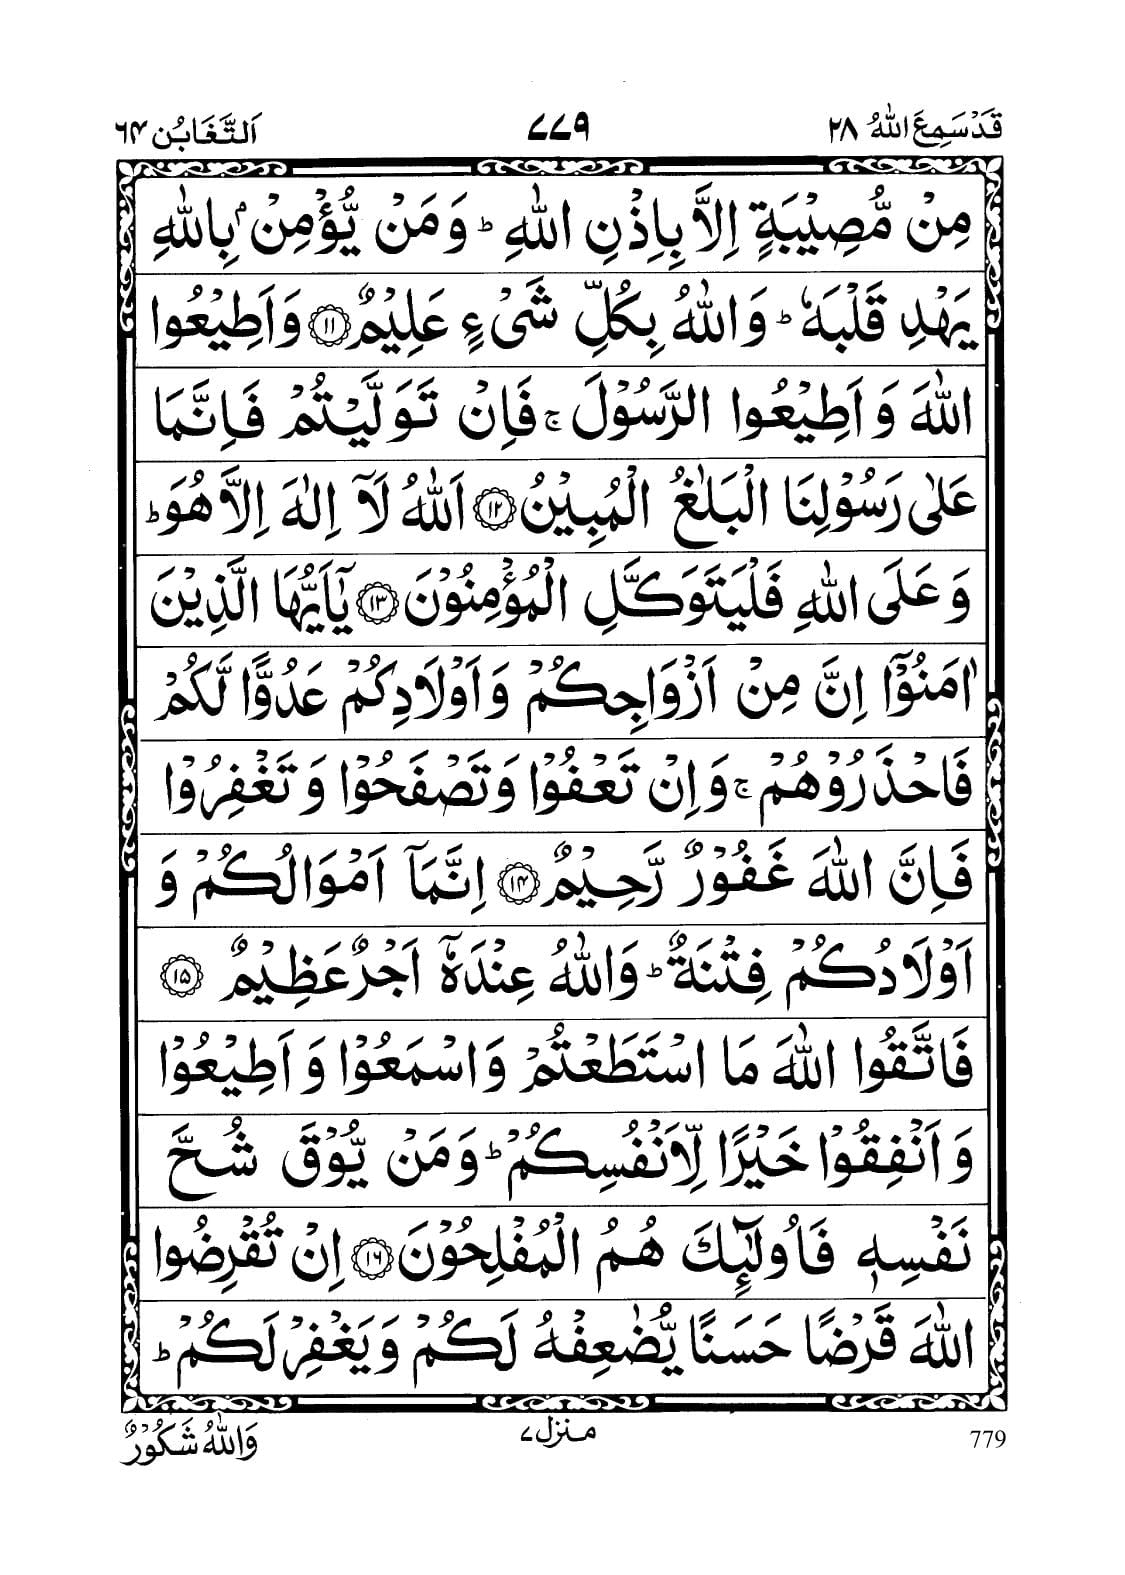 قَدْ سَمِعَ اللّٰهُ ۲۸ ۷۷۹ اَلتَّغَابُن ۶۴
مِنْ مُّصِیْبَةٍ اِلَّا بِاِذْنِ اللّٰهِ ؕ وَ مَنْ یُّؤْمِنْۢ بِاللّٰهِ
یَهْدِ قَلْبَهٗ ؕ وَ اللّٰهُ بِكُلِّ شَیْءٍ عَلِیْمٌ ۝۱۱ وَ اَطِیْعُوا
اللّٰهَ وَ اَطِیْعُوا الرَّسُوْلَ ۚ فَاِنْ تَوَلَّیْتُمْ فَاِنَّمَا
عَلٰی رَسُوْلِنَا الْبَلٰغُ الْمُبِیْنُ ۝۱۲ اَللّٰهُ لَاۤ اِلٰهَ اِلَّا هُوَ ؕ
وَ عَلَی اللّٰهِ فَلْیَتَوَكَّلِ الْمُؤْمِنُوْنَ ۝۱۳ یٰۤاَیُّهَا الَّذِیْنَ
اٰمَنُوْۤا اِنَّ مِنْ اَزْوَاجِكُمْ وَ اَوْلَادِكُمْ عَدُوًّا لَّكُمْ
فَاحْذَرُوْهُمْ ۚ وَ اِنْ تَعْفُوْا وَ تَصْفَحُوْا وَ تَغْفِرُوْا
فَاِنَّ اللّٰهَ غَفُوْرٌ رَّحِیْمٌ ۝۱۴ اِنَّمَاۤ اَمْوَالُكُمْ وَ
اَوْلَادُكُمْ فِتْنَةٌ ؕ وَ اللّٰهُ عِنْدَهٗۤ اَجْرٌ عَظِیْمٌ ۝۱۵
فَاتَّقُوا اللّٰهَ مَا اسْتَطَعْتُمْ وَ اسْمَعُوْا وَ اَطِیْعُوْا
وَ اَنْفِقُوْا خَیْرًا لِّاَنْفُسِكُمْ ؕ وَ مَنْ یُّوْقَ شُحَّ
نَفْسِهٖ فَاُولٰٓىِٕكَ هُمُ الْمُفْلِحُوْنَ ۝۱۶ اِنْ تُقْرِضُوا
اللّٰهَ قَرْضًا حَسَنًا یُّضٰعِفْهُ لَكُمْ وَ یَغْفِرْ لَكُمْ ؕ
779 منزل ۷ وَ اللّٰهُ شَكُوْرٌ